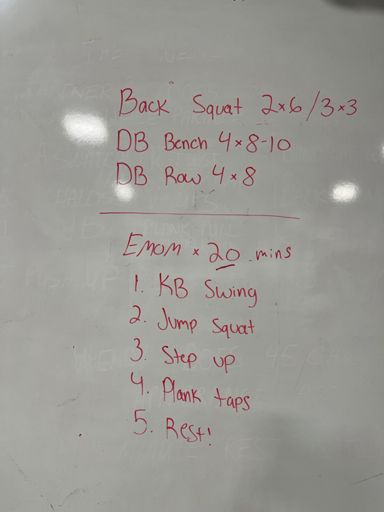 Back Squat 2x6/3x3
DB Bench 4x8-10
DB Row 4x8
EMOM x 20 mins
1. KB Swing
2. Jump Squat
3. Step up
4. Plank taps
5. Rest!